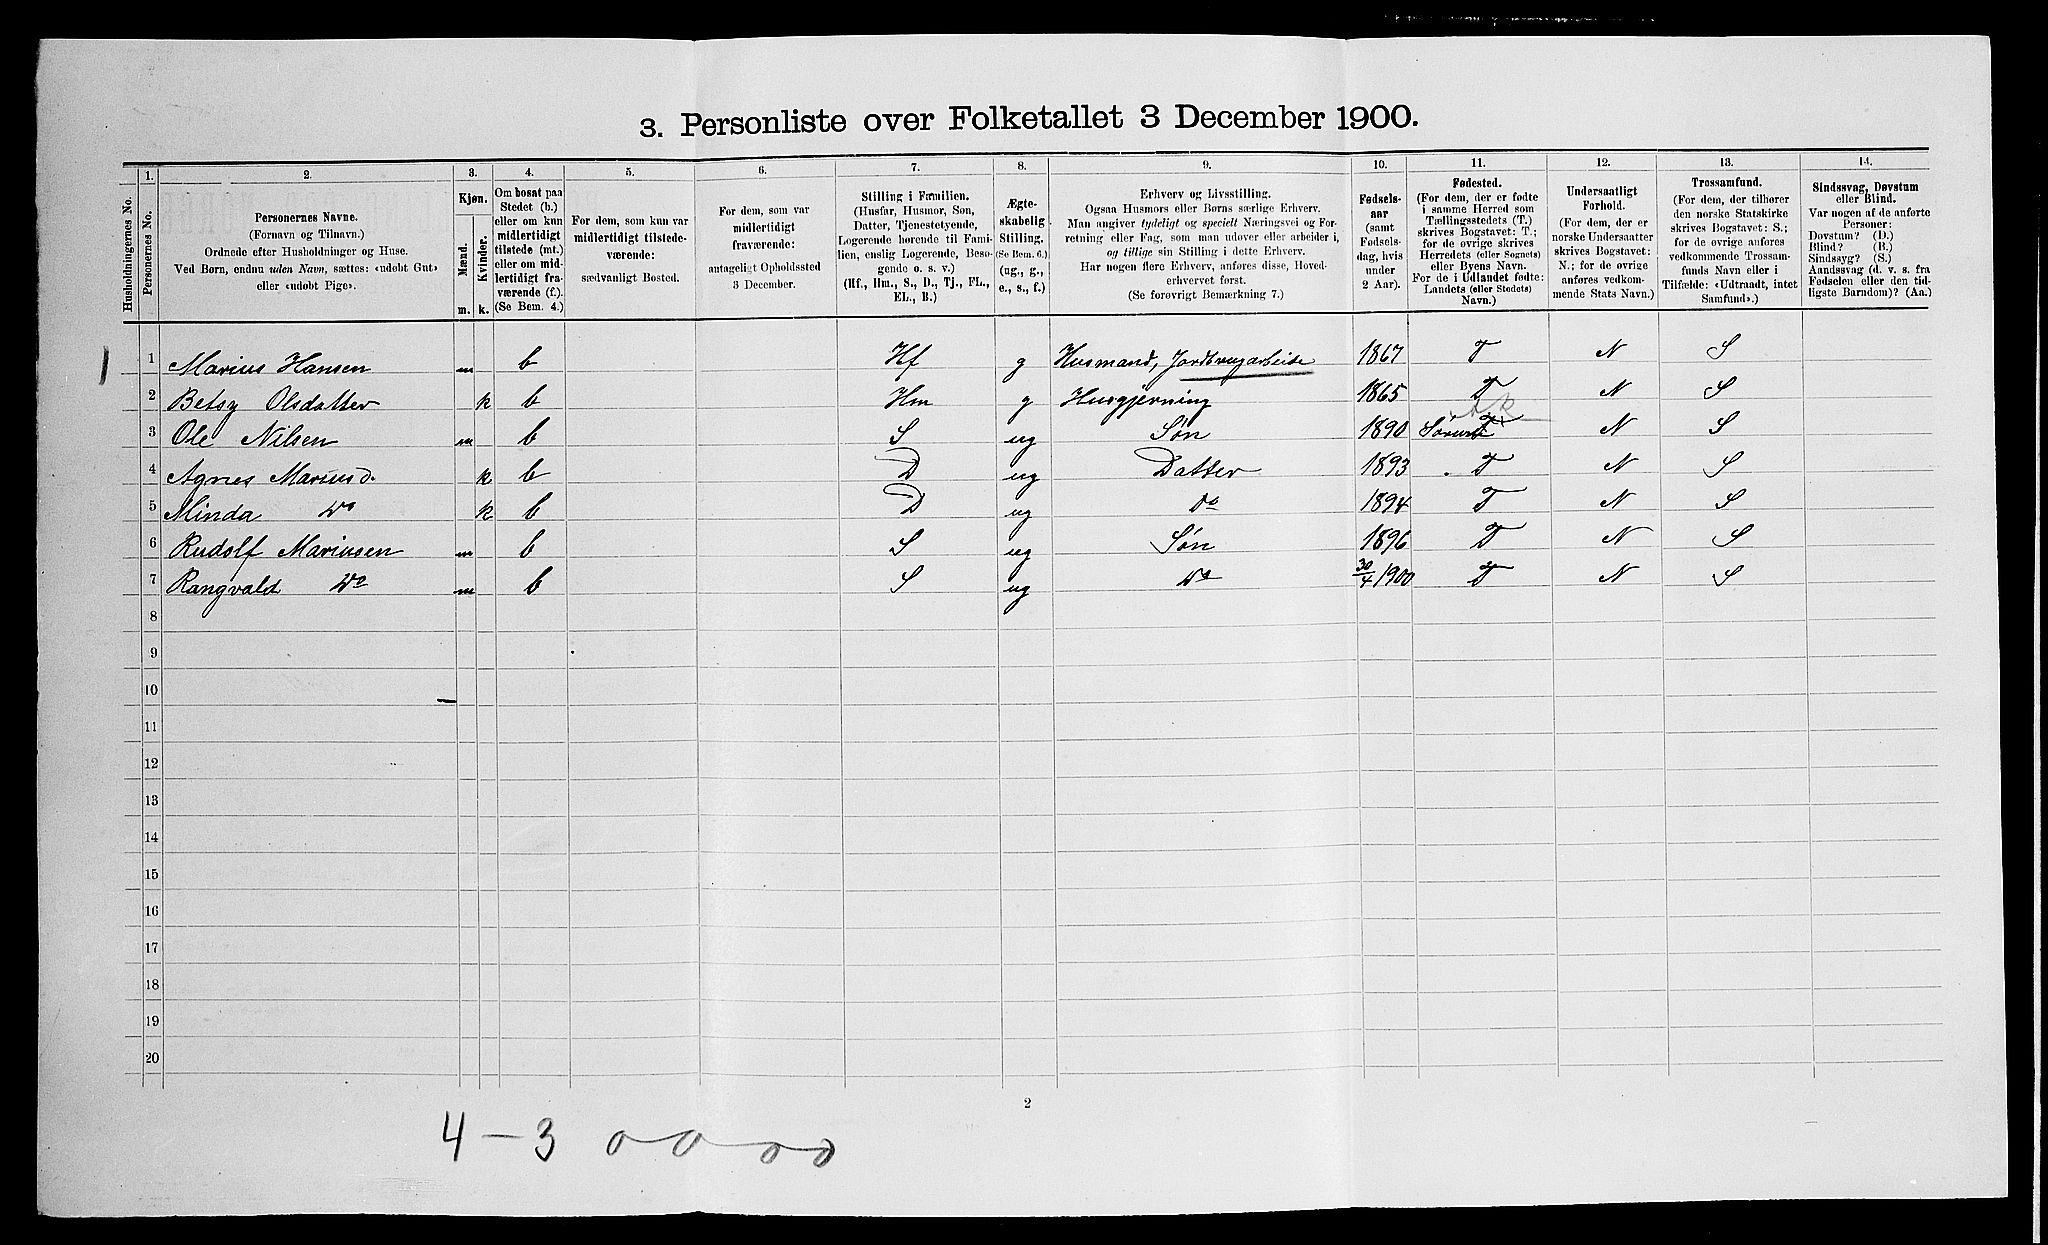 3. Personliste over Folketallet 3 December 1900.
1. 2. 3. 4. 5. 6. 7. 8. 9. 10. 11. 12. 13. 14.
Husholdningernes No.
Personernes No.
Personernes Navne.
(Fornavn og Tilnavn.)
Ordnede efter Husholdninger og Huse.
Ved Børn, endnu uden Navn, sættes: «udøbt Gut»
eller «udøbt Pige».
Kjøn.
Mænd. Kvinder.
m. k.
Om bosat paa
Stedet (b.)
eller om kun
midlertidigt
tilstede (mt.)
eller om mid-
lertidigt fra-
værende (f.).
(Se Bem. 4.)
For dem, som kun var
midlertidigt tilstede-
værende:
sædvanligt Bosted.
For dem, som var
midlertidigt
fraværende:
antageligt Opholdssted
3 December.
Stilling i Familien.
(Husfar, Husmor, Søn,
Datter, Tjenestetyende,
Logerende hørende til Fami-
lien, enslig Logerende, Besø-
gende o. s. v.)
(Hf., Hm., S., D., Tj., FL.,
EL., B.)
Ægte-
skabelig
Stilling.
(Se Bem. 6.)
(ug., g.,
e., s., f.)
Erhverv og Livsstilling.
Ogsaa Husmors eller Børns særlige Erhverv.
Man angiver tydeligt og specielt Næringsvei og For-
retning eller Fag, som man udøver eller arbeider i,
og tillige sin Stilling i dette Erhverv.
Har nogen flere Erhverv, anføres disse, Hoved-
erhvervet først.
(Se forøvrigt Bemærkning 7.)
Fødsels-
aar
(samt
Fødsels-
dag, hvis
under
2 Aar).
Fødested.
(For dem, der er fødte
i samme Herred som
Tællingsstedets (T.)
skrives Bogstavet: T.;
for de øvrige skrives
Herredets (eller Sognets)
eller Byens Navn.
For de i Udlandet fødte:
Landets (eller Stedets)
Navn.)
Undersaatligt
Forhold.
(For dem, der er
norske Undersaatter
skrives Bogstavet:
N.; for de øvrige
anføres vedkom-
mende Stats Navn.)
Trossamfund.
(For dem, der tilhører
den norske Statskirke
skrives Bogstavet: S.;
for de øvrige anføres
vedkommende Trossam-
funds Navn eller i
Tilfælde: «Udtraadt, intet
Samfund».)
Sindssvag, Døvstum
eller Blind.
Var nogen af de anførte
Personer:
Døvstum? (D.)
Blind? (B.)
Sindssyg? (S.)
Aandssvag (d. v. s. fra
Fødselen eller den tid-
ligste Barndom)? (Aa.)
1 1 Marius Hansen m b Hf g Husmand, Jordbrugarbeide 1867 T N S
2 Betsy Olsdatter k b Hm g Husgjerning 1865 T N S
3 Ole Nilsen m b S ug Søn 1890 T N S
4 Agnes Mariusd. k b D ug Datter 1893 T N S
5 Minda Do k b D ug do 1894 T N S
6 Rudolf Mariusen m b S ug Søn 1896 T N S
7 Rangvald Do m b S ug Do 30/4 1900 T N S
8
9
10
11
12
13
14
15
16
17
18
19
20
2
4-3 0 0 0 0